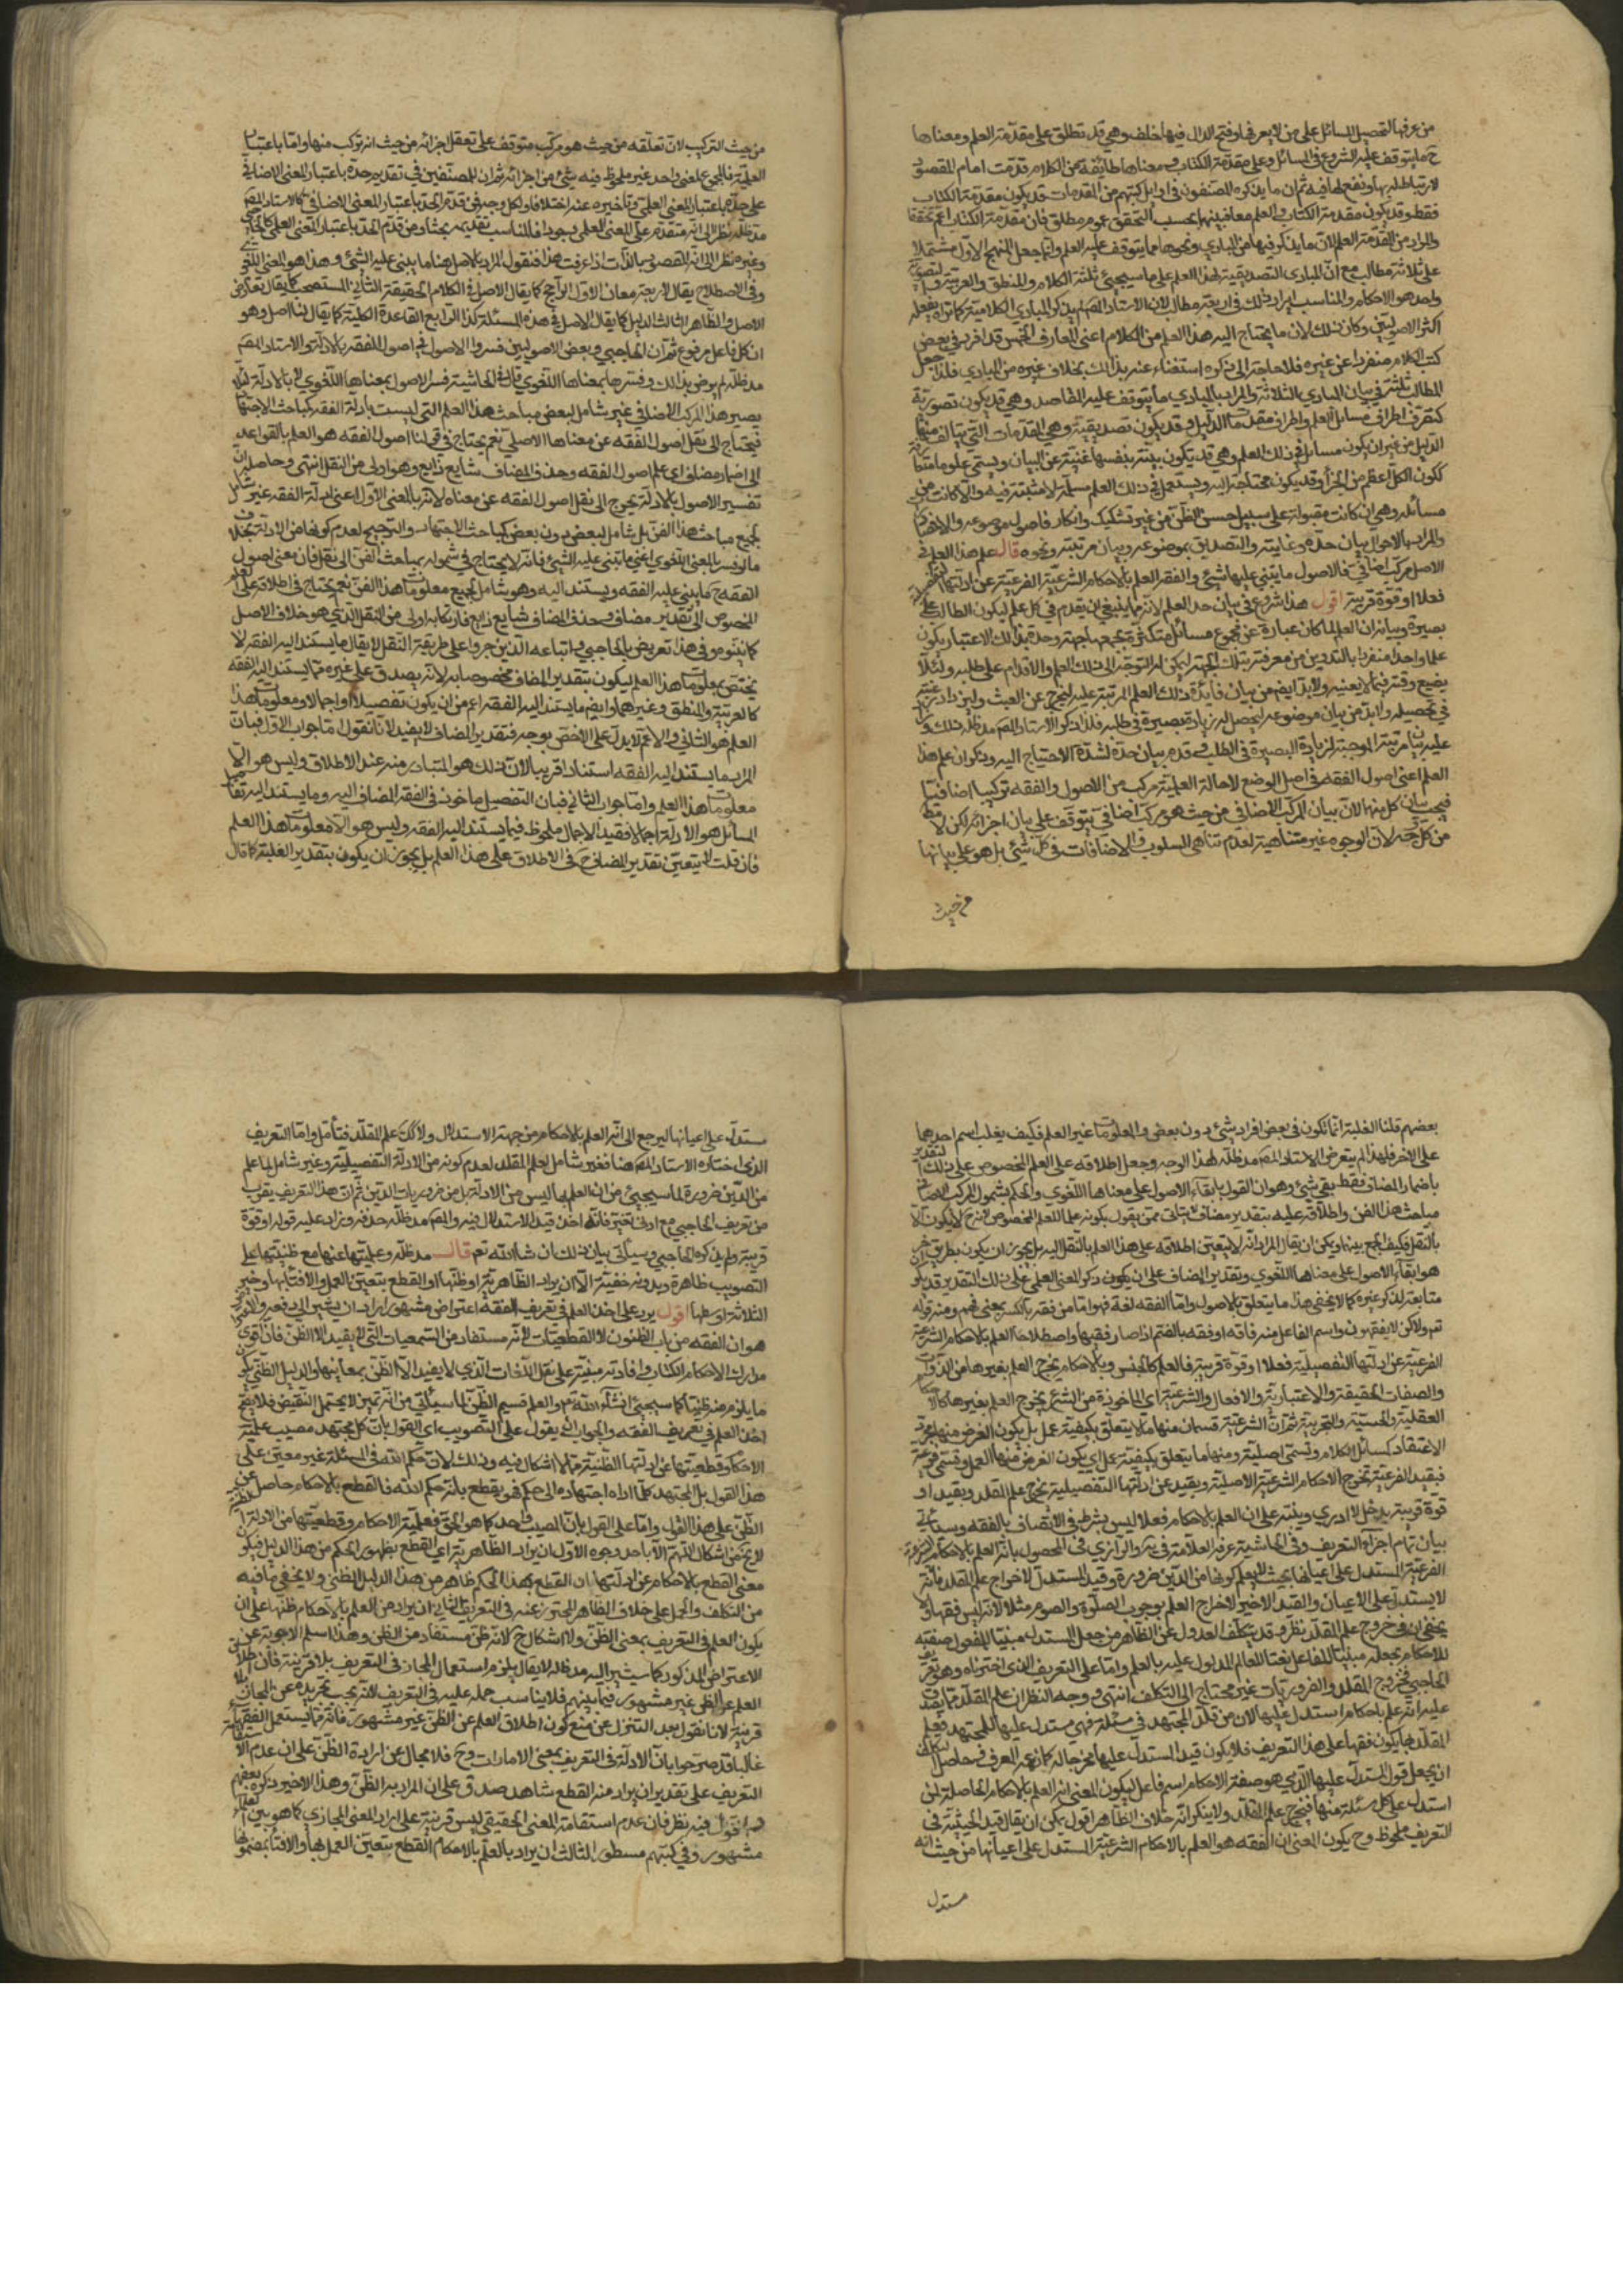 من عرفها لتحصيل المسائل على من لا يعرفها وفتح الدال فيها خلف وهي قد تطلق على مقدمة العلم ومعناها
ح ما يتوقف عليه الشروع في المسائل وعلى مقدمة الكتاب ومعناها طائفة من الكلام قدمت امام المقصود
لارتباط له بها ونفع لها فيه ثم ان ما يذكره المصنفون في اوايل كتبهم من المقدمات قد يكون مقدمة الكتاب
فقط وقد يكون مقدمة الكتاب والعلم معا فبينهما بحسب التحقق عموم مطلق فان مقدمة الكتاب اعم تحققا
والمراد من المقدمة العلم لان ما يذكر فيها من المبادي ونحوها مما يتوقف عليه العلم وانما جعل المنهج الاول مشتملا
على ثلاثة مطالب مع ان المبادي التصديقية لهذا العلم على ما سيجيئ ثلثة الكلام والمنطق والعربية والتصورية
واحد هو الاحكام والمناسب ايراد ذلك في اربعة مطالب لان الاستاد المص لم يذكر المبادي الكلامية كما تراه يفعله
اكثر الاصوليين وكان ذلك لان ما يحتاج اليه هذا العلم من الكلام اعني المعارف الخمس قد افرد في بعض
كتب الكلام منفردا عن غيره فلا حاجة الى ذكره استغناء عنه بذالك بخلاف غيره من المبادي فلذا جعل
المطالب ثلثة في بيان المبادي الثلاثة والمراد بالمبادي ما يتوقف عليه المقاصد وهي قد يكون تصورية
كتعريف اطراف مسائل العلم واطراف مقدمات الدلايل وقد يكون تصديقية وهي المقدمات التي يتالف منها
الدليل من غير ان يكون مسائل في ذلك العلم وهي قد يكون بينة بنفسها غنية عن البيان ويسمى علوما متعارفة
ككون الكل اعظم من الجزأ وقد يكون محتاجة اليه ويستعمل في ذلك العلم مسلمة لا مثبتة فيه والا كانت من
مسائله وهي ان كانت مقبولة على سبيل حسن الظن من غير تشكيك وانكار فاصول موضوعه والا فمصادرات
والمراد بالاحوال بيان حده وغايته والتصديق بموضوعه وبيان مرتبته ونحوه قال علم هذا العلم في
الاصل مركب اضافي فالاصول ما يبتني عليها شيئ والفقه العلم بالاحكام الشرعية الفرعية عن ادلتها التفصيلية
فعلا او قوة قريبة اقول هذا شروع في بيان حد العلم لانه مما ينبغي ان يقدم في كل علم ليكون الطالب على
بصيرة وبيانه ان العلم لما كان عبارة عن مجموع مسائل متكثرة تجمعها جهة وحدة بذالك الاعتبار يكون
علما واحدا منفردا بالتدوين من معرفته بتلك الجهة ليمكن له التوجه الى ذلك العلم والاقدام على طلبه ولئلا
يضيع وقته فيما لا يعنيه ولا بد ايضا من بيان فائدة ذلك العلم المرتبة عليه ليخرج عن العبث ولتزداد رغبته
في تحصيله ولابد من بيان موضوعه ليحصل له زيادة بصيرة في طلبه فلذا ذكر الاستاد المص مد ظله ذلك وزاد
عليه بيان مرتبته الموجبة لزيادة البصيرة في الطلب وقدم بيان حده لشدة الاحتياج اليه وذكر ان علم هذا
العلم اعني اصول الفقه في اصل الوضع لا حالة العلمية مركب من الاصول والفقه تركيبا اضافيا
فيجب بيان كل منهما لان بيان المركب الاضافي من حيث هو مركب اضافي يتوقف على بيان اجزائه لكن لا مط
من كل وجه لان الوجوه غير متناهية لعدم تناهي السلوب والاضافات في كل شيئ بل هو على بيانها
من حيث
من حيث التركيب لان تعلقه من حيث هو مركب متوقف على تعقل اجزائه من حيث انه تركب منها واما باعتبار
العلمية فالمجموع لمعنى واحد غير ملحوظ فيه شيئ من اجزائه ثم ان للمصنفين في تقديم حده باعتبار المعنى الاضافي
على حده باعتبار المعنى العلمي وتأخيره عنه اختلافا ولكل وجه فمن قدم الحد باعتبار المعنى الاضافي كالاستاد المص
مد ظله نظر الى انه متقدم على المعنى العلمي وجودا فالمناسب تقديمه بحثا ومن قدم الحد باعتبار المعنى العلمي كالحاجبي
وغيره نظر الى انه المقصود بالذات اذا عرفت هذا فنقول المراد بالاصل هنا ما يبنى عليه الشيئ وهذا هو المعنى اللغوي
وفي الاصطلاح يقال لاربعة معان الاول الراجح كما يقال الاصل في الكلام الحقيقة الثاني المستصحب كما يقال تعارض
الاصل والظاهر الثالث الدليل كما يقال الاصل في هذه المسئلة كذا الرابع القاعدة الكلية كما يقال لنا اصل وهو
ان كل فاعل مرفوع ثم ان الحاجبي وبعض الاصوليين فسروا الاصول في اصول الفقه بالادلة والاستاد المص
مد ظله لم يرض بذالك وفسرها بمعناها اللغوي قال في الحاشية فسر الاصول بمعناها اللغوي لا بالادلة لئلا
يصير هذا المركب الاضافي غير شامل لبعض مباحث هذا العلم التي ليست بادلة الفقه كمباحث الاجتهاد
فيحتاج الى نقل اصول الفقه عن معناها الاصلي نعم يحتاج في قولنا اصول الفقه هو العلم بالقواعد
الى اضمار مضاف اي علم اصول الفقه وحذف المضاف شايع ذايع وهو اولى من النقل انتهى وحاصله ان
تفسير الاصول بالادلة يحوج الى نقل اصول الفقه عن معناه لانه بالمعنى الاول اعني ادلة الفقه غير شامل
لجميع مباحث هذا الفن بل شامل لبعض دون بعض كمباحث الاجتهاد والترجيح لعدم كونها من الادلة بخلاف
ما لو فسر بالمعنى اللغوي اعني ما تبنى عليه الشيئ فانه لا يحتاج في شموله بمباحث الفن الى نقل فان معنى اصول
الفقه ح ما يبنى عليه الفقه ويستند اليه وهو شامل لجميع معلومات هذا الفن نعم يحتاج في اطلاقه على العلم
المخصوص الى تقدير مضاف وحذف المضاف شايع ذايع فارتكابه اولى من النقل الذي هو خلاف الاصل
كما ينوه وفي هذا تعريض بالحاجبي واتباعه الذين جروا على طريقة النقل لا يقال ما يستند اليه الفقه لا
يختص بمعلومات هذا العلم ليكون بتقدير المضاف مخصوصا به لانه يصدق على غيره مما يستند اليه الفقه
كالعربية والمنطق وغيرهما وايضا ما يستند اليه الفقه اعم من ان يكون تفصيلا او اجمالا ومعلومات هذا
العلم هو الثاني والاعم لا يدل على الاخص بوجه فتقدير المضاف لا يفيد لانا نقول اما جواب الاول فبان
المراد بما يستند اليه الفقه استنادا قريبا لان ذلك هو المتبادر منه عند الاطلاق وليس هو الا
معلومات هذا العلم واما جواب الثاني فبان التفصيل ماخوذ في الفقه المضاف اليه وما يستند اليه تفاصيل
المسائل هو الادلة اجمالا فقيد الاجمال ملحوظ فيما يستند اليه الفقه وليس هو الا معلومات هذا العلم
فان قلت لا يتعين تقدير المضاف ح في الاطلاق على هذا العلم بل يجوز ان يكون بتقدير الغلبة كما قال
بعضهم قلنا الغلبة انما تكون في بعض افراد شيئ دون بعض والمعلومات غير العلم فكيف يغلب اسم احدهما
على الاخر فلهذا لم يتعرض الاستاد المص مد ظله لهذا الوجه وجعل اطلاقه على العلم المخصوص على ذلك التقدير
باضمار المضاف فقط بقي شيئ وهو ان القول بابقاء الاصول على معناها اللغوي والحكم بشمول المركب الاضافي
مباحث هذا الفن واطلاقه عليه بتقدير مضاف يتاتى ممن يقول بكونه علما للعلم المخصوص ح لا يكون الا
بالنقل فكيف الجمع بينهما ويمكن ان يقال المراد انه لا يتعين اطلاقه على هذا العلم بالنقل اليه بل يجوز ان يكون بطريق اخر
هو ابقاء الاصول على معناها اللغوي وتقدير المضاف على ان يكون ذكر المعنى العلمي على ذلك التقدير
متابعة لذكر غيره كما لا يخفى هذا ما يتعلق بالاصول واما الفقه لغة فهو اما من فقه بالكسر بمعنى فهم ومنه قوله
تع ولاكن لا يفقهون واسم الفاعل منه فاقه او فقه بالضم اذا صار فقيها واصطلاحا العلم بالاحكام الشرعية
الفرعية عن ادلتها التفصيلية فعلا او قوة قريبة فالعلم كالجنس وبالاحكام يخرج العلم بغيرها من الذوات
والصفات الحقيقة والاعتبارية والافعال والشرعية اي الماخوذة من الشرع يخرج العلم بغيرها كالاحكام
العقلية والحسية والتجربية ثم ان الشرعية قسمان منها ما لا يتعلق بكيفية عمل بل يكون الغرض منها مجرد
الاعتقاد كمسائل الكلام وتسمى اصلية ومنها ما يتعلق بكيفية عمل اي يكون الغرض منها العمل وتسمى فرعية
فبقيد الفرعية تخرج الاحكام الشرعية الاصلية وبقيد عن ادلتها التفصيلية يخرج علم المقلد وبقيد او
قوة قريبة يدخل لا ادري وينبه على ان العلم بالاحكام فعلا ليس بشرط في الاتصاف بالفقه وسيأتي
بيان تمام اجزاء التعريف وفي الحاشية عرفه العلامة في يه والرازي في المحصول بانه العلم بالاحكام الشرعية
الفرعية المستدل على اعيانها بحيث لا يعلم كونها من الدين ضرورة وقيد المستدل لاخراج علم المقلد فانه
لا يستدل على الاعيان والقيد الاخير لاخراج العلم بوجوب الصلوة والصوم مثلا لانه ليس فقها ولا
يخفى ان في خروج علم المقلد نظر وقد يتكلف العدول عن الظاهر من جعل المستدل مبنيا للمفعول صفة
للاحكام بجعله مبنيا للفاعل نعتا للعالم المدلول عليه بالعلم واما على التعريف الذي اخترناه وهو تعريف
الحاجبي فخروج المقلد والضروريات غير محتاج الى التكلف انتهى ووجه النظر ان علم المقلد مما يصدق
عليه انه علم باحكام استدل عليها لان من قلد المجتهد في مسئلة فهي مستدل عليها للمجتهد فعلم
المقلد بها يكون فقها على هذا التعريف فلا يكون قيد المستدل عليها مخرجا له كما زعمه المعرف وحاصل التكلف
ان يجعل قول المستدل عليها الذي هو صفة الاحكام اسم فاعل ليكون المعنى انه العلم بالاحكام الحاصلة لمن
استدل على كل مسئلة منها فيخرج علم المقلد ولا ينكر انه خلاف الظاهر اقول يمكن ان يقال قيد الحيثية في
التعريف ملحوظ وح يكون المعنى ان الفقه هو العلم بالاحكام الشرعية المستدل على اعيانها من حيث انه
مستدل
مستدل على اعيانها ليرجع الى انه العلم بالاحكام من جهة الاستدلال ولا كك علم المقلد فتأمل واما التعريف
الذي اختاره الاستاد المص هنا فغير شامل لعلم المقلد لعدم كونه من الادلة التفصيلية وغير شامل لما علم
من الدين ضرورة لما سيجيئ من ان العلم بها ليس من الادلة بل من ضروريات الدين ثم ان هذا التعريف يقرب
من تعريف الحاجبي مع ادنى تغيير فانه اخذ قيد الاستدلال فيه والمص مد ظله حذفه وزاد عليه قوله او قوة
قريبة ولم يذكره الحاجبي وسيأتي بيان ذلك ان شاء الله تعم قال مد ظله وعلميتها عنها مع ظنيتها على
التصويب ظاهرة وبدونه خفية الا ان يراد الظاهرية او ظنها او القطع بتعين العمل والافتأ بها وخير
الثلاثة اوسطها اقول يرد على اخذ العلم في تعريف الفقه اعتراض مشهور اراد ان يشير الى دفعه
هو ان الفقه من باب الظنون لا القطعيات لانه مستفاد من السمعيات التي لا يفيد الا الظن فان اقوى
مدارك الاحكام الكتاب وافادته مبنية على نقل اللغات الذي لا يفيد الا الظن بمعانيها والدليل الظني يكون
ما يلزم منه ظنيا كما سيجيئ انشاء الله تعم والعلم قسيم الظن لما سيأتي من انه تميز لا يحتمل النقيض فلا يصح
اخذ العلم في تعريف الفقه والجواب انه يقول على التصويب اي القول بان كل مجتهد مصيب علمية
الاحكام وقطعيتها عن ادلتها الظنية مما لا اشكال فيه وذلك لان حكم الله في المسئلة غير معين على
هذا القول بل المجتهد كلما اداه اجتهاده الى حكم فهو يقطع بانه حكم الله فالقطع بالاحكام حاصل عن
الظن على هذا القول واما على القول بان المصيب واحد كما هو الحق فعلمية الاحكام وقطعيتها من الادلة الظنية
لا يخ من اشكال اللهم الا باحد وجوه الاول ان يراد الظاهرية اي القطع بظهور الحكم من هذا الدليل فيكون
معنى القطع بالاحكام عن ادلتها ان القطع بهذا الحكم ظاهر من هذا الدليل الظني ولا يخفى ما فيه
من التكلف والحمل على خلاف الظاهر المحترز عنه في التعريف الثاني ان يراد من العلم بالاحكام ظنها على ان
يكون العلم في التعريف بمعنى الظن ولا اشكال ح لانه ظن مستفاد من الظن وهذا اسلم الاجوبة عن
الاعتراض المذكور كما سيشير اليه مد ظله لا يقال يلزم استعمال المجاز في التعريف بلا قرينة فان اطلاق
العلم على الظن غير مشهور فيما بينهم فلا يناسب حمله عليه في التعريف لانه يجب تجريده عن المجاز بلا
قرينة لانا نقول بعد التنزل عن منع كون اطلاق العلم عن الظن غير مشهور فانه مما يستعمل الفقهاء
غالبا قد صرحوا بان الادلة في التعريف بمعنى الامارات وح فلا مجال عن ارادة الظن على ان عدم استقامة
التعريف على تقدير ان يراد منه القطع شاهد صدق على ان المراد به الظن وهذا الاخير ذكره بعضهم
اقول فيه نظر فان عدم استقامة المعنى الحقيقي ليس قرينة على ارادة المعنى المجازي كما هو بين
مشهور وفي كتبهم مسطور الثالث ان يراد بالعلم بالاحكام القطع بتعين العمل بها والافتأ بمضمونها